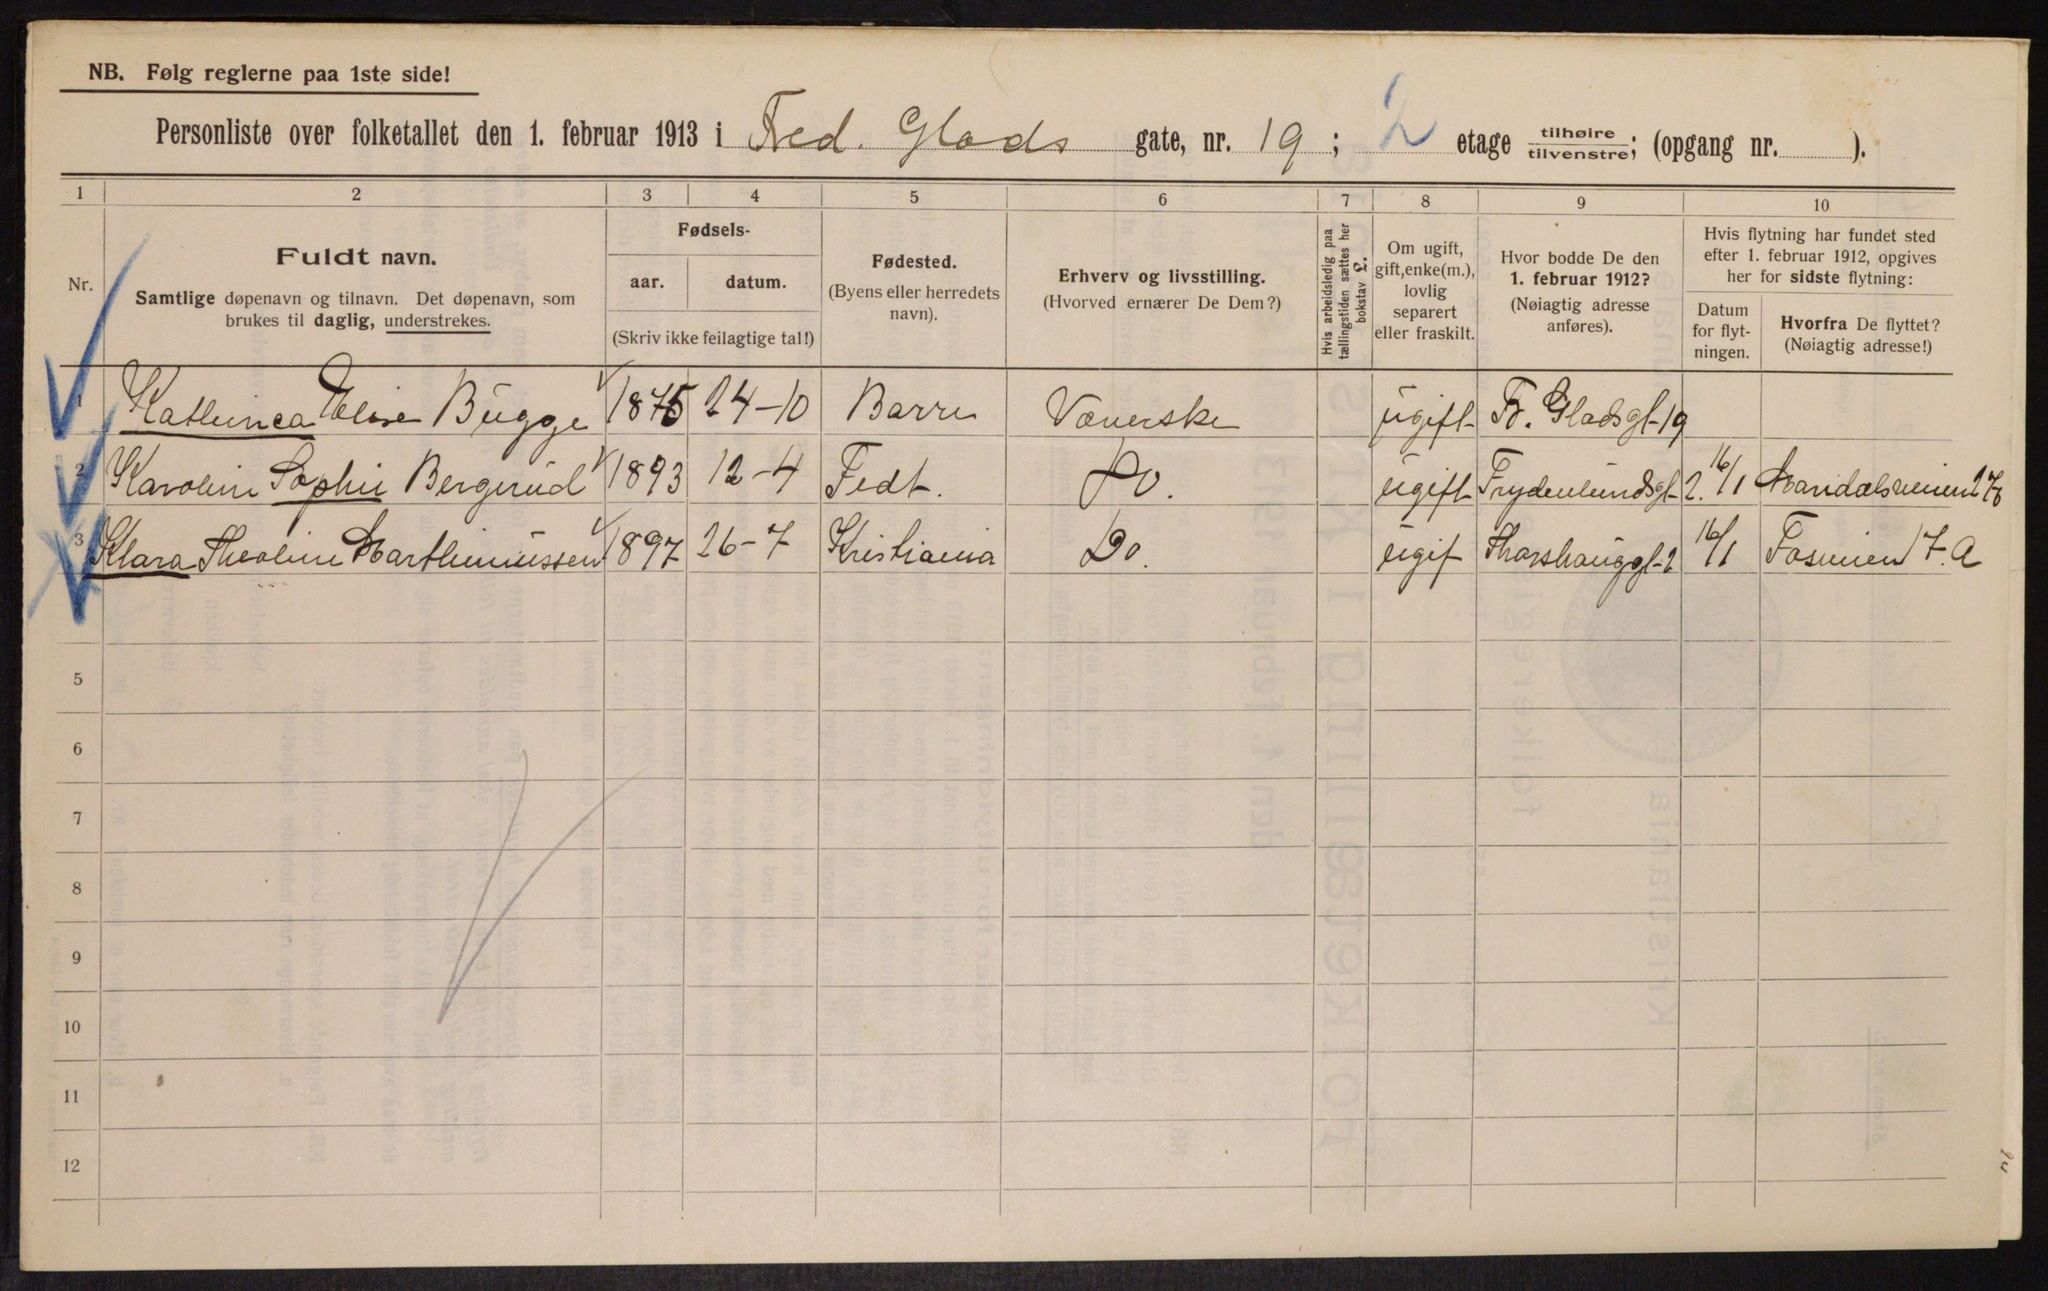 NB. Følg reglerne paa 1ste side!
Personliste over folketallet den 1. februar 1913 i Fred. Glads gate, nr. 19; 2 etage tilhøire/tilvenstre; (opgang nr. ).
1 2 3 4 5 6 7 8 9 10
Nr.
Fuldt navn.
Samtlige døpenavn og tilnavn. Det døpenavn, som
brukes til daglig, understrekes.
Fødsels-
aar. datum.
(Skriv ikke feilagtige tal!)
Fødested.
(Byens eller herredets
navn).
Erhverv og livsstilling.
(Hvorved ernærer De Dem?)
Hvis arbeidsledig paa
tællingstiden sættes her
bokstav L.
Om ugift,
gift, enke(m.),
lovlig
separert
eller fraskilt.
Hvor bodde De den
1. februar 1912?
(Nøiagtig adresse
anføres).
Hvis flytning har fundet sted
efter 1. februar 1912, opgives
her for sidste flytning:
Datum
for flyt-
ningen.
Hvorfra De flyttet?
(Nøiagtig adresse!)
1 Kathinca Elise Bugge 1875 24-10 Barre Væverske ugift Fr. Gladsgt-19
2 Karoline Sophie Bergerud 1893 12-4 Fedt. Do. ugift Frydenlundsgt-2. 16/1
3 Klara Theoline Marthinussen 1897 26-7 Kristiania Do. ugif Thorshauggt-2 16/1 7. A
5
6
7
8
9
10
11
12